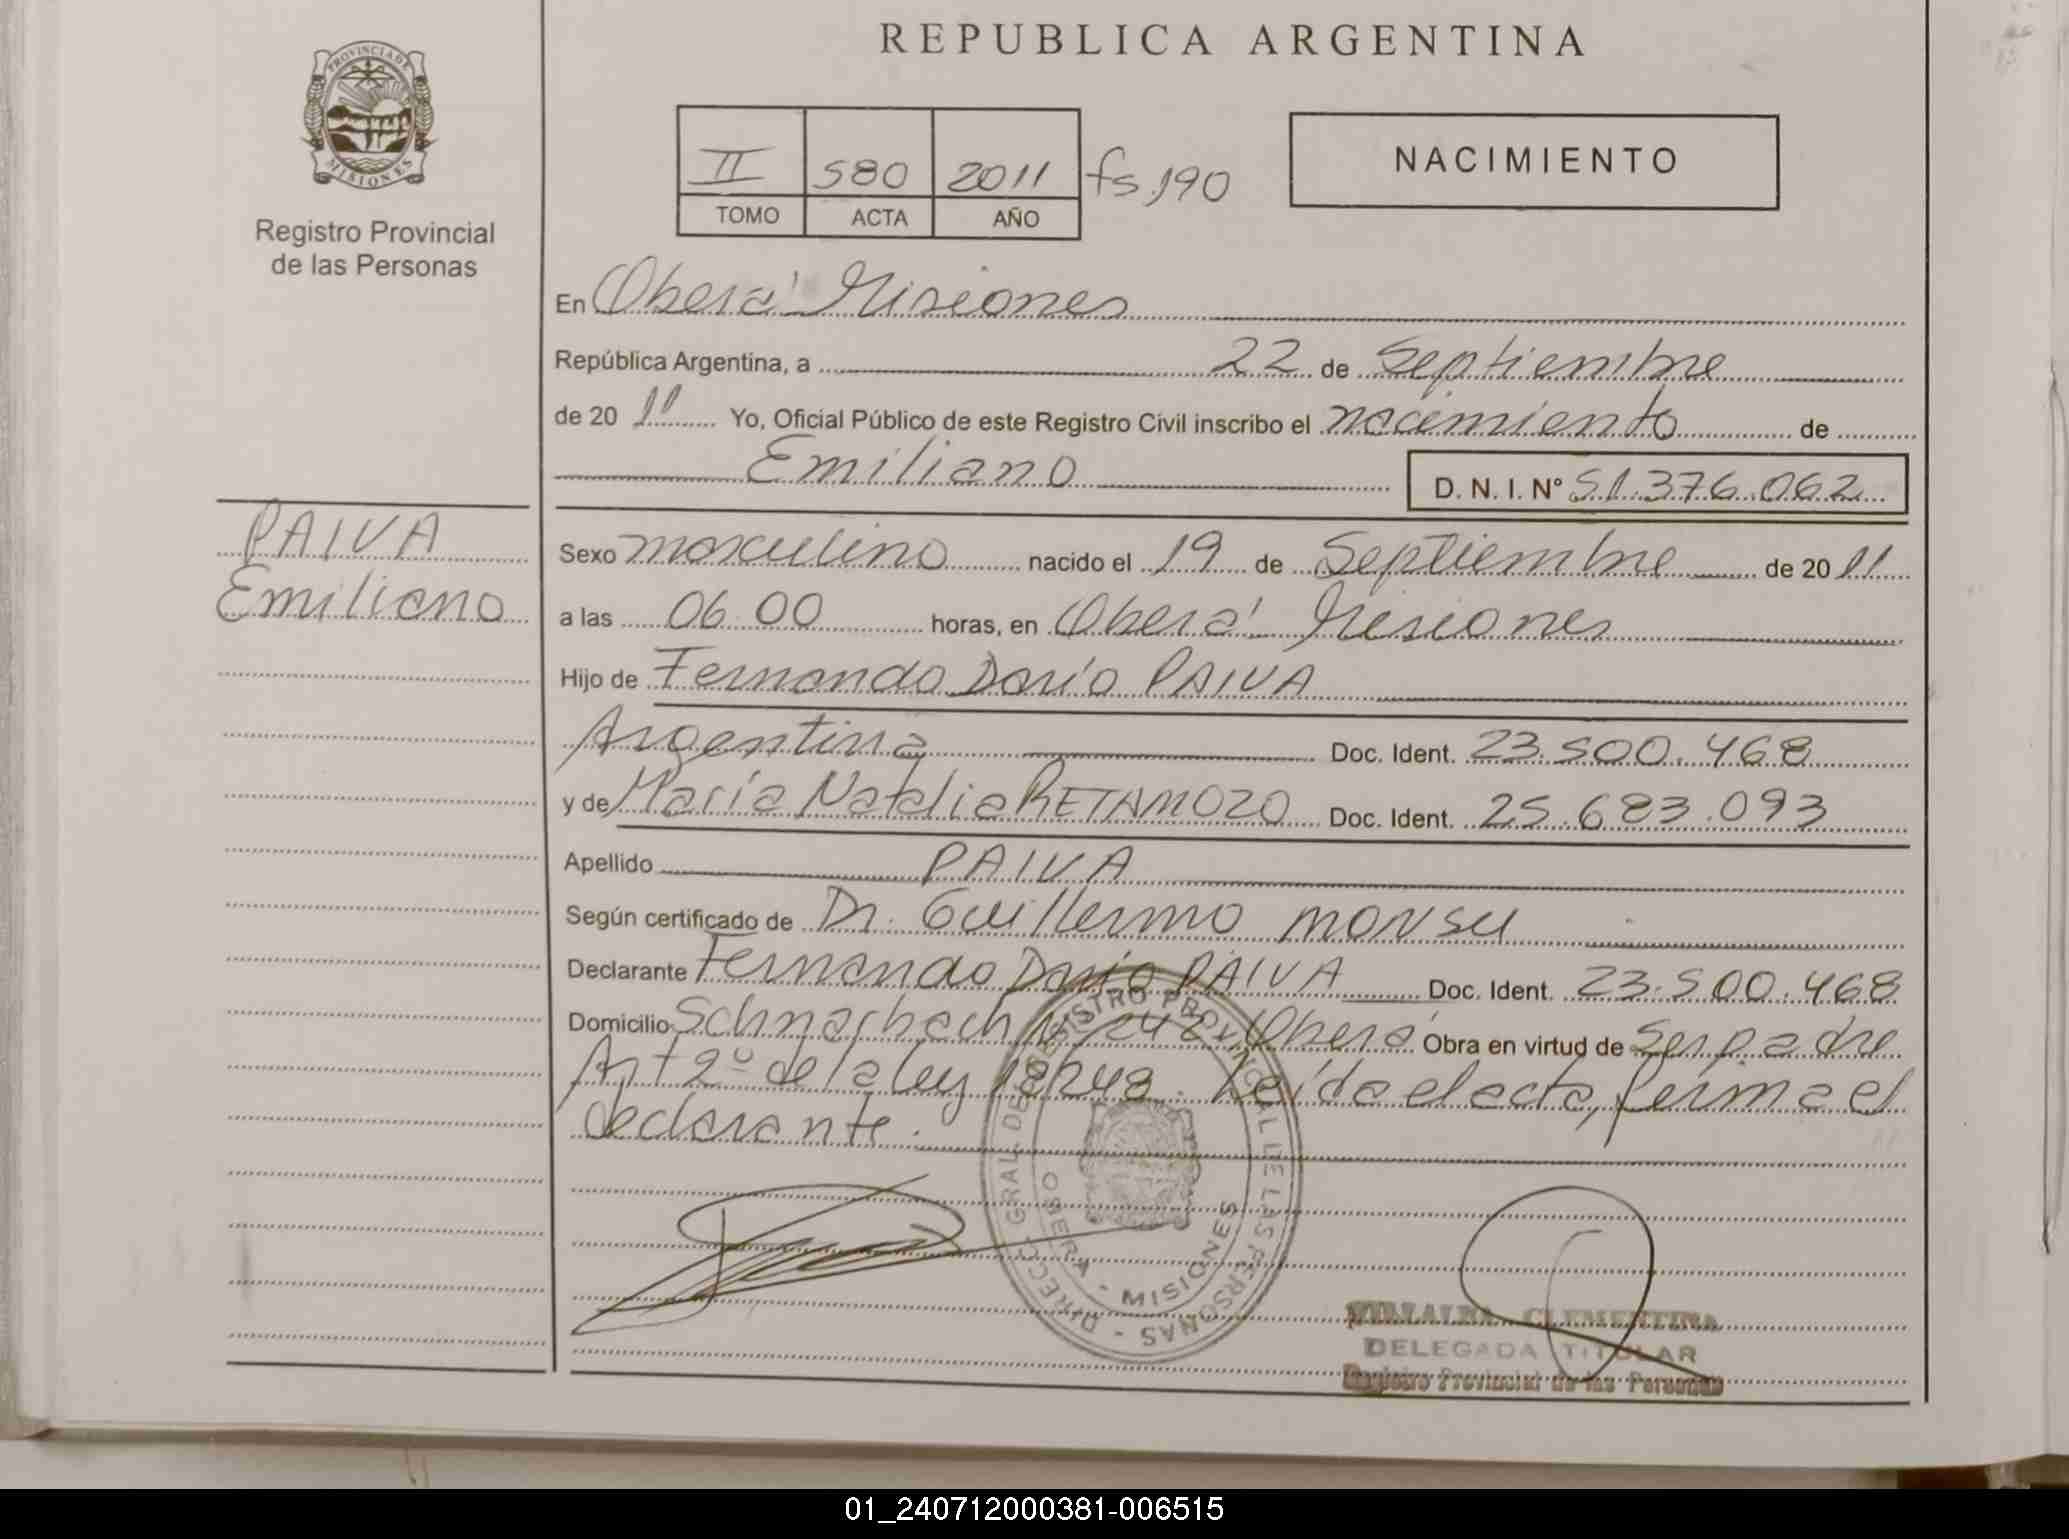 REPUBLICA ARGENTINA
PROVINCIA DE
MISIONES
Registro Provincial
de las Personas
II 580 2011 fs.190
TOMO ACTA AÑO
NACIMIENTO
En Oberá Misiones
República Argentina, a 22 de Septiembre
de 20 11 Yo, Oficial Público de este Registro Civil inscribo el nacimiento de
Emiliano D. N. I. N° 51.376.062
PAIVA
Emiliano
Sexo masculino nacido el 19 de Septiembre de 20 11
a las 06:00 horas, en Oberá Misiones
Hijo de Fernando Darío PAIVA
Argentina Doc. Ident. 23.500.468
y de María Natalia RETAMOZO Doc. Ident. 25.683.093
Apellido PAIVA
Según certificado de Dr. Guillermo MONSU
Declarante Fernando Darío PAIVA Doc. Ident. 23.500.468
Domicilio 242 Oberá Obra en virtud de Ser padre
Art 2º de la ley 18248. Leída el acta, firma el
declarante.
DIRECC. GRAL. DEL REGISTRO PROVINCIAL DE LAS PERSONAS
OBERA - MISIONES
VILLALBA CLEMENTINA
DELEGADA TITULAR
Registro Provincial de las Personas
01_240712000381-006515